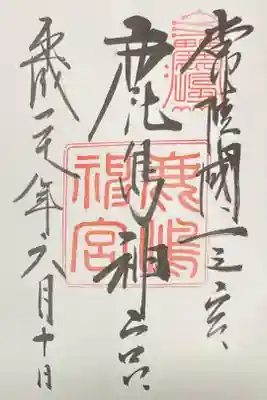 常陸國一之宮
鹿島神宮
鹿嶋
神宮
平成年六月十日